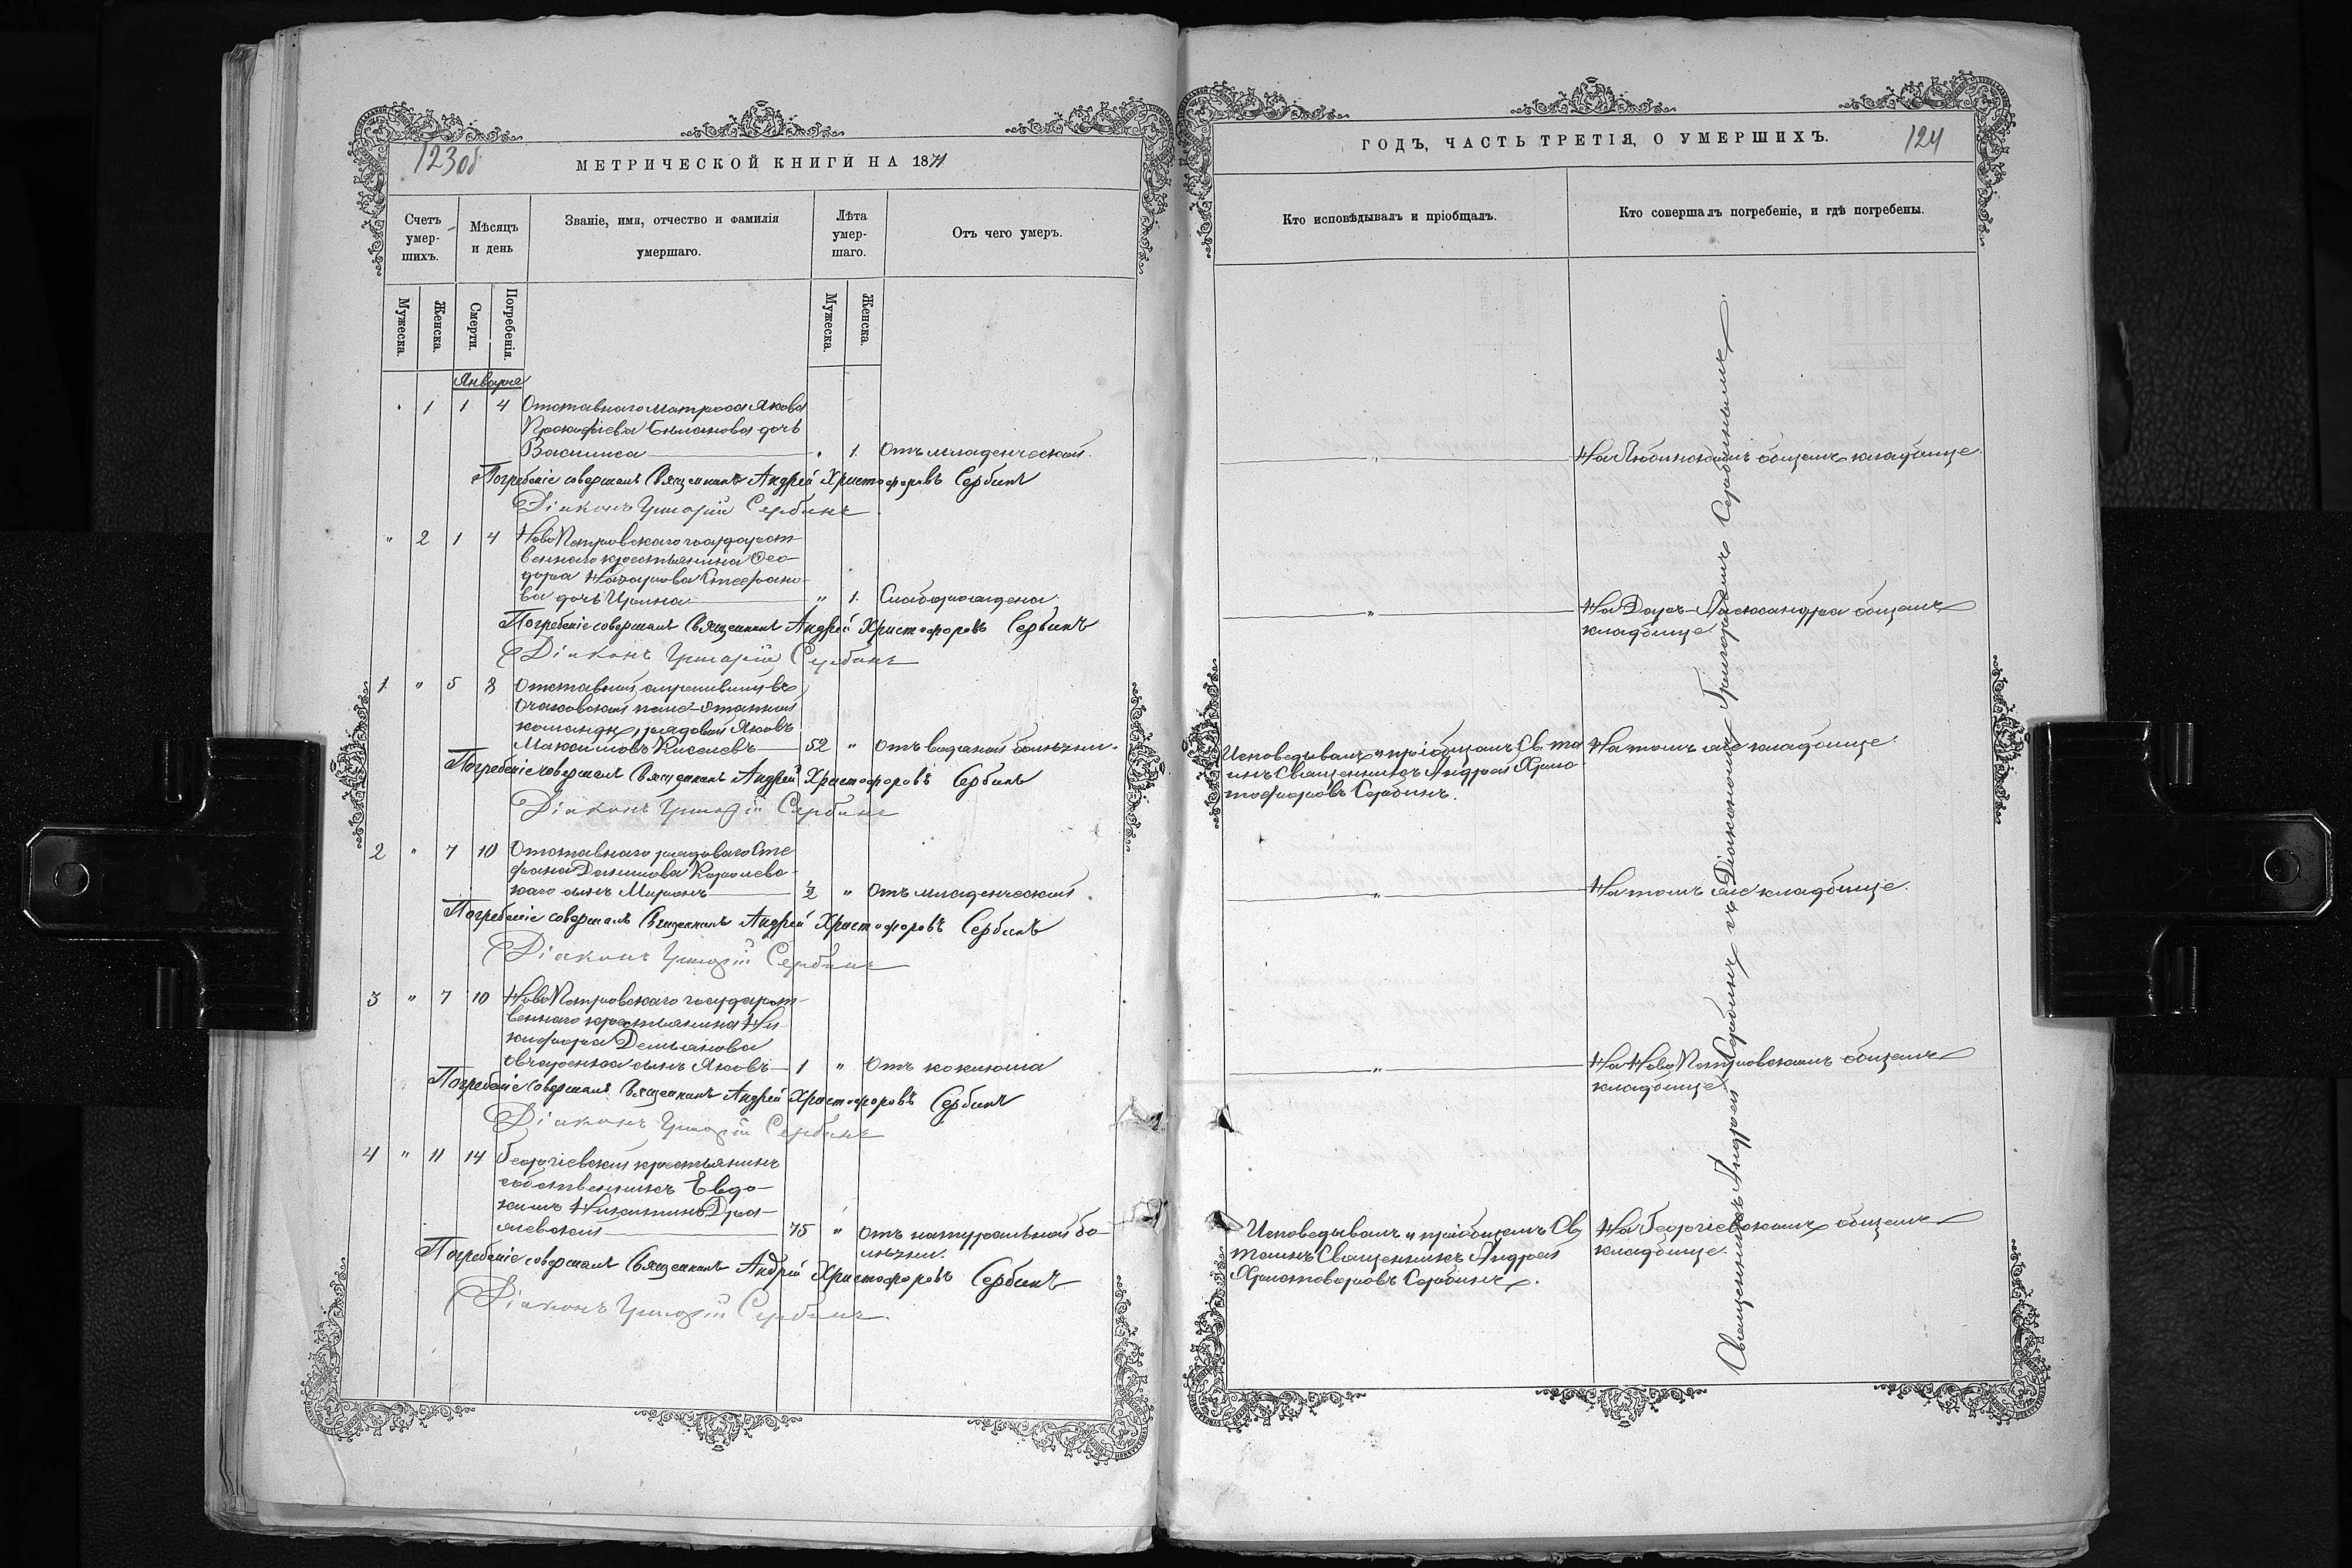 123об
МЕТРИЧЕСКОЙ КНИГИ НА 1871
Счетъ умер- шихъ.
Мѣсяцъ и день
Званіе, имя, отчество и фамилія умершаго.
Лѣта умер- шаго.
Отъ чего умеръ.
Мужеска.
Женска.
Смерти.
Погребенія.
Мужеска.
Женска.
Января
1 1 4 Отставнаго матроса Якова
Прокофіева дочь
Василиса 1. Отъ младенческой.
Погребеніе совершалъ Священникъ Андрей Христофоровъ Сербинъ
Діаконъ Григорій Сербинъ
" 2 1 4 Ново Петровскаго государст-
веннаго крестьянина Ѳео-
дора Назарова Стефано-
ва дочь Ирина " 1. Слаборождена.
Погребеніе совершалъ Священникъ Андрей Христофоровъ Сербинъ
Діаконъ Григорій Сербинъ
1. " 5 8 Отставной, служившій въ
Очаковской пеше-этапной
командѣ, рядовой Яковъ
Максимовъ Киселевъ 52 " Отъ водяной болѣзни.
Погребеніе совершалъ Священникъ Андрей Христофоровъ Сербинъ
Діаконъ Григорій Сербинъ
2 " 7 10 Отставнаго рядоваго Сте-
фана Данилова Королевс-
каго сынъ Миронъ ½ " Отъ младенческой.
Погребеніе совершалъ Священникъ Андрей Христофоровъ Сербинъ
Діаконъ Григорій Сербинъ
3 " 7 10 Ново Петровскаго государст-
веннаго крестьянина Ни-
кифора Демьянова
Овчаренка сынъ Яковъ 1 " Отъ коклюша
Погребеніе совершалъ Священникъ Андрей Христофоровъ Сербинъ
Діаконъ Григорій Сербинъ
4 " 11 14 Георгіевскій крестьянинъ
собственникъ Евдо-
кимъ Никитинъ
75 " Отъ натуральной бо-
лѣзни.
Погребеніе совершалъ Священникъ Андрей Христофоровъ Сербинъ
Діаконъ Григорій Сербинъ.
ГОДЪ, ЧАСТЬ ТРЕТІЯ, О УМЕРШИХЪ.
124
Кто исповѣдывалъ и пріобщалъ.
Кто совершалъ погребеніе, и гдѣ погребены.
" общемъ кладбище.
" общемъ
кладбище
Исповедывалъ и пріобщалъ Св. та
инъ Священникъ Андрей Хрис-
тофоровъ Сербинъ.
На томъ же кладбище.
" На томъ же кладбище.
" На Ново Петровскомъ общемъ
кладбище.
Исповедывалъ и пріобщалъ Св.
таинъ Священникъ Андрей
Христофоровъ Сербинъ.
На Георгіевскомъ общемъ
кладбище.
Священникъ Андрей Сербинъ съ Діакономъ Григоріемъ Сербинымъ.